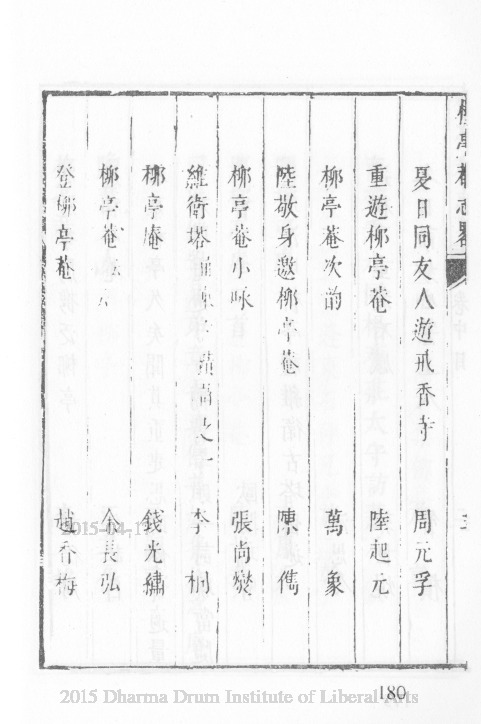 柳亭菴志畧
夏日同友人遊戒香寺 周元孚
重遊柳亭菴 陸起元
柳亭菴次韵 萬象
陸敬身邀柳亭菴 陳儁
柳亭菴小咏 張尚爕
維衛塔 李桐
柳亭庵 錢光繡
柳亭菴 余長弘
登柳亭菴 趙香梅
2015-04-1
180
2015 Dharma Drum Institute of Liberal Arts